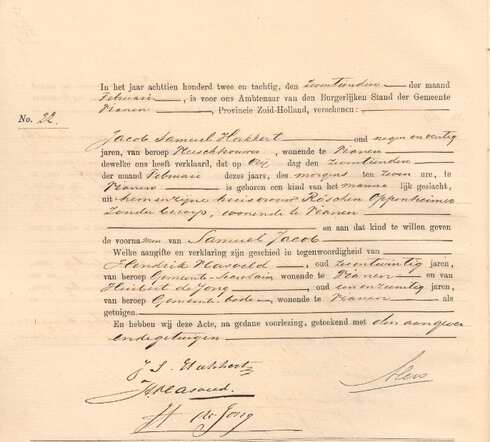 In het jaar achttien honderd twee en tachtig, den zeventienden der maand
Februarij, is voor ons Ambtenaar van den Burgerlijken Stand der Gemeente
Vianen, Provincie Zuid-Holland, verschenen:
No. 22.
Jacob Samuel Hakkert oud negen en veertig
jaren, van beroep Vleeschhouwer, wonende te Vianen
dewelke ons heeft verklaard, dat op dag den zeventienden
der maand Februarij dezes jaars, des morgens ten zeven ure, te
Vianen is geboren een kind van het mannelijk geslacht,
uit hem en zijne huisvrouw Röschen Oppenheimer
zonder beroep, wonende te Vianen
en aan dat kind te willen geven
de voornamen van Samuel Jacob
Welke aangifte en verklaring zijn geschied in tegenwoordigheid van
Hendrik Hasoeld, oud zevenentwintig jaren,
van beroep Gemeente Secretaris wonende te Vianen en van
Huibert de Jong, oud jaren,
van beroep Gemeentebode, wonende te Vianen als
getuigen.
En hebben wij deze Acte, na gedane voorlezing, geteekend met den aangever
en de getuigen
J. S. Hakkert
de Jong